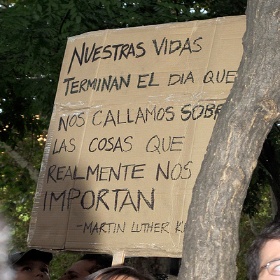 NUESTRAS VIDAS
TERMINAN EL DIA QUE
NOS CALLAMOS SOBR
LAS COSAS QUE
REALMENTE NOS
IMPORTAN
-MARTIN LUTHER K